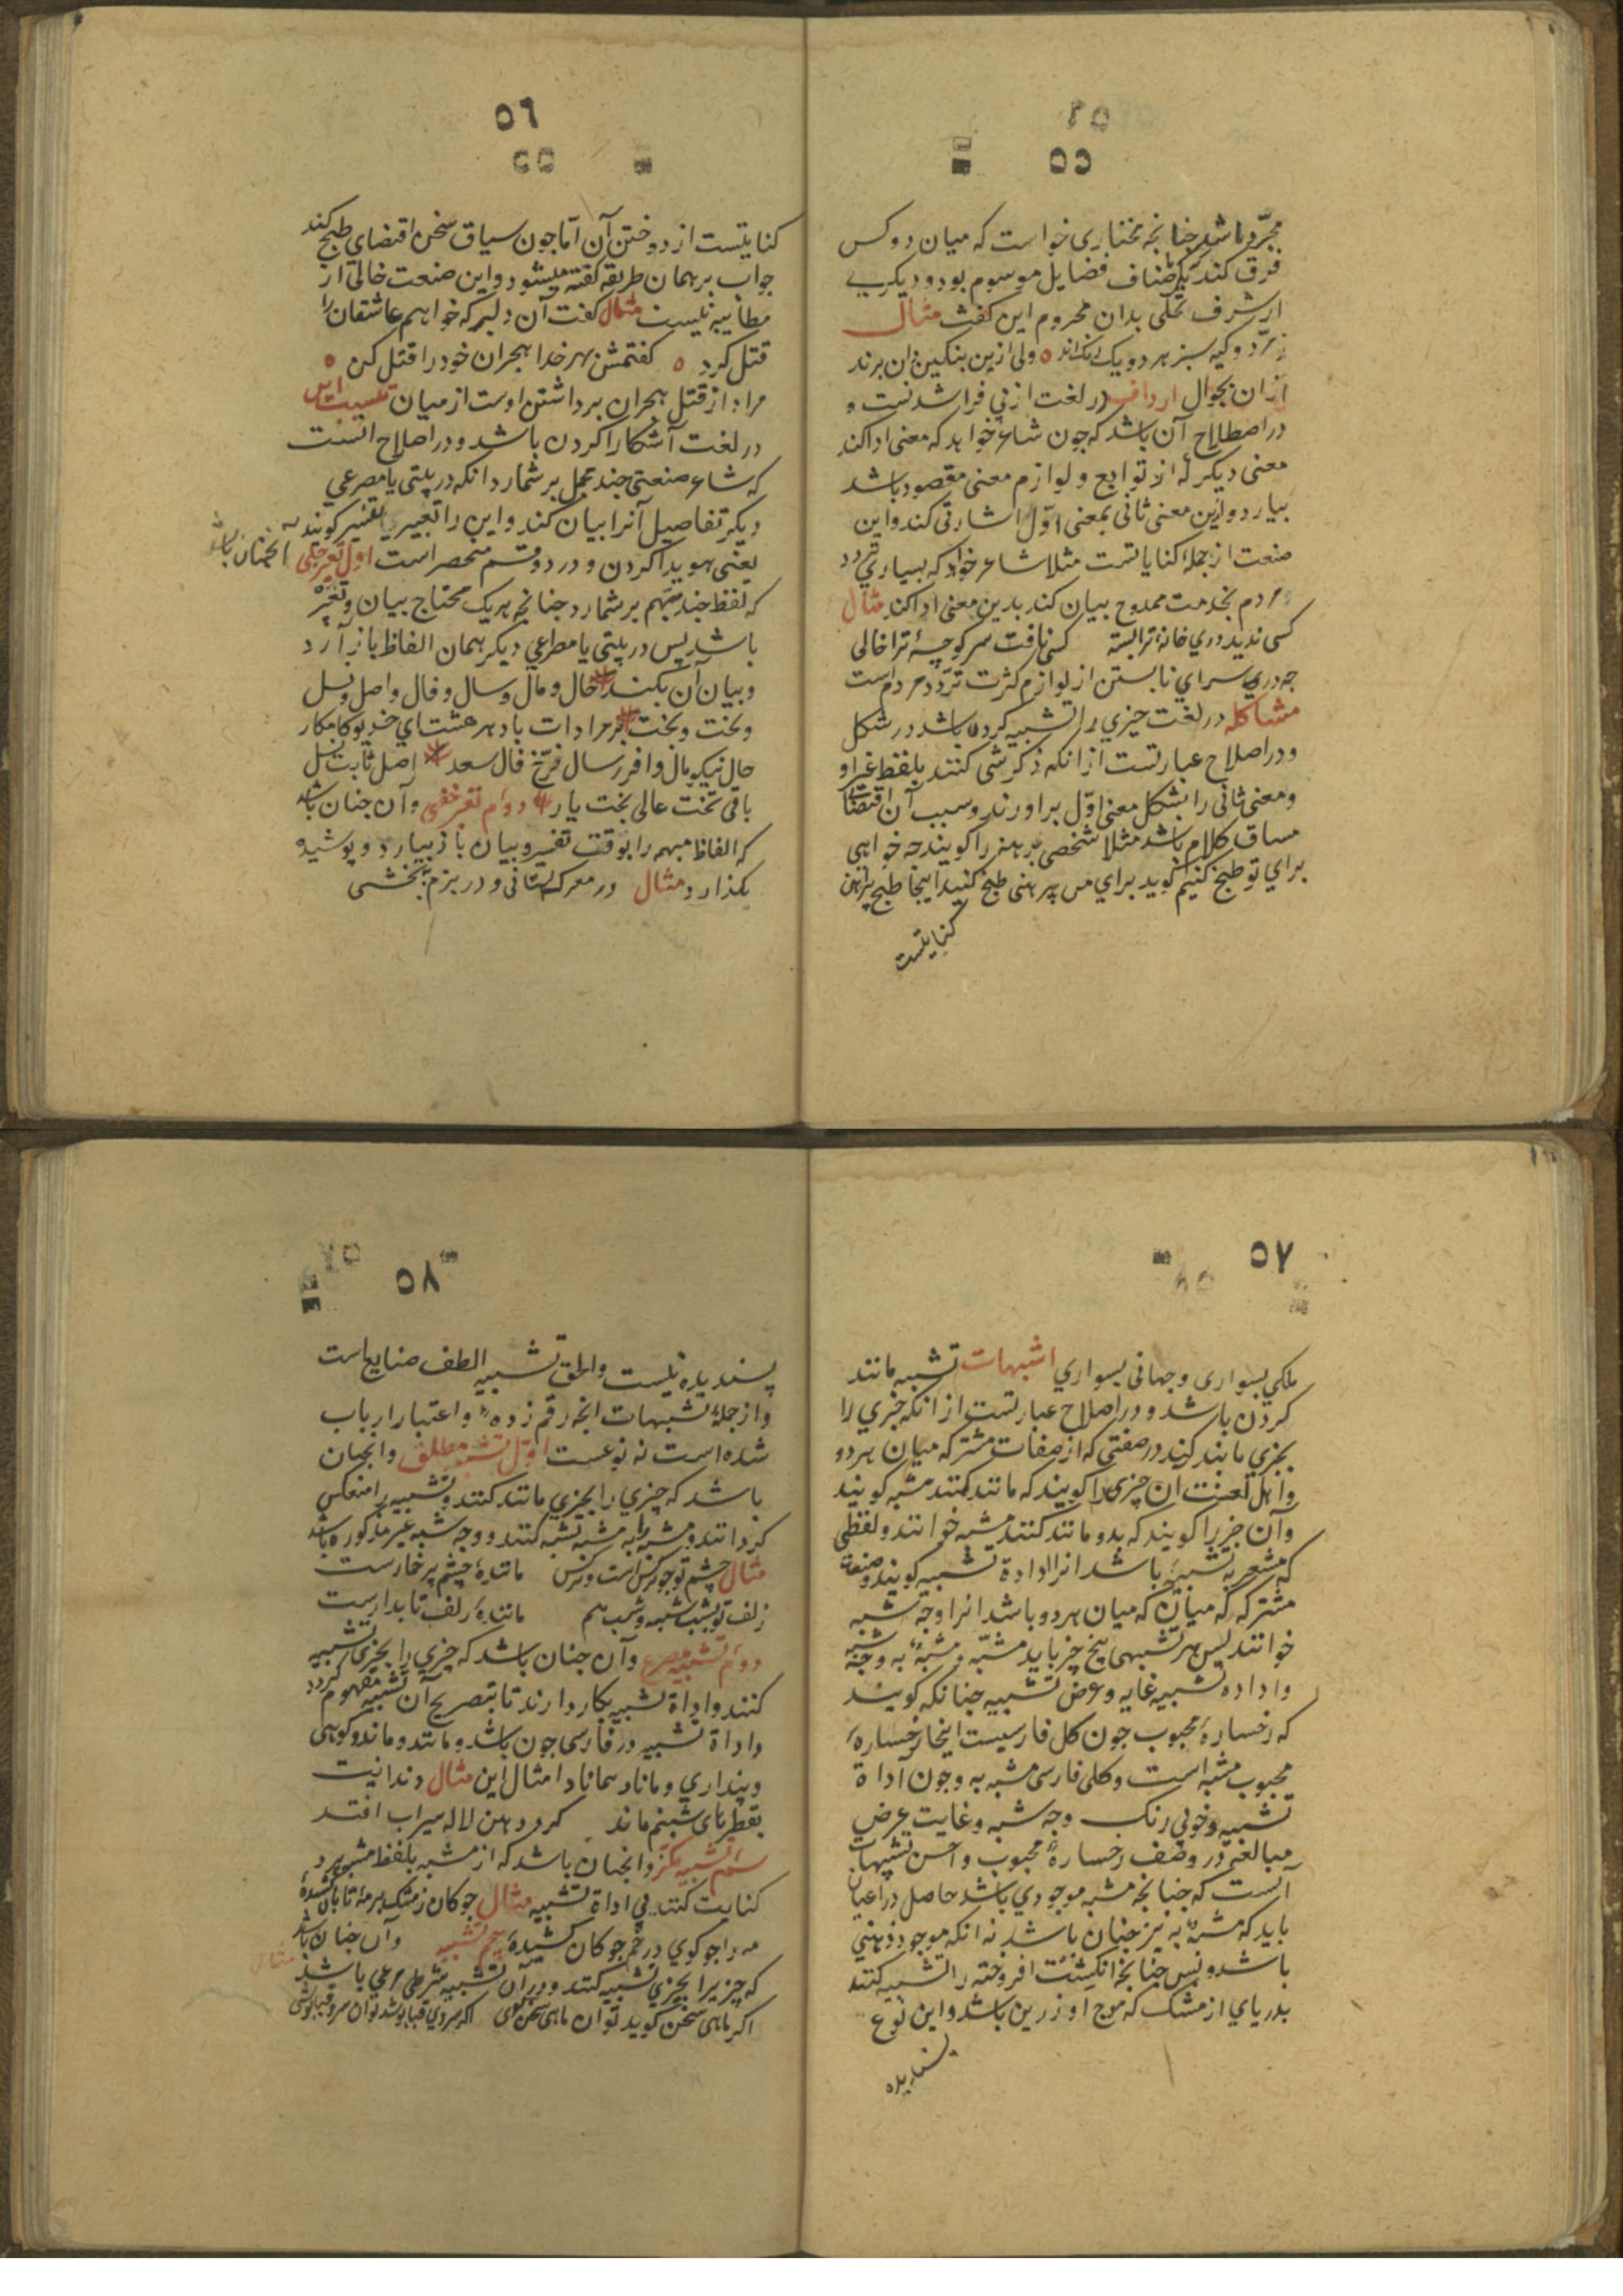 ٥٥
مجرّد باشد چنانچه مختاری خواست که میان دو کس
فرق کند یکی باصناف فضایل موسوم بود و دیکری
از شرف تحلّی بدان محروم این کفت مثال
زمرّد و کیه سبز هر دو یک رنک اند ولی ازین بنکین دان برند
ازان بجوال ارداف در لغت از پی فرا شدنست و
در اصطلاح آن باشد که چون شاعر خواهد که معنی ادا کند
معنی دیکر که از توابع و لوازم معنی مقصود باشد
بیارد و ازین معنی ثانی بمعنی اوّل اشارتی کند و این
صنعت از جملهٔ کنایاتست مثلا شاعر خواهد که بسیاری تردد
مردم بخدمت ممدوح بیان کند بدین معنی ادا کند مثال
کسی ندید دری خانهٔ ترا بسته کسی نیافت سر کوچهٔ ترا خالی
چه دری سرای نابستن از لوازم کثرت تردّد مردم است
مشاکله در لغت چیزی را تشبیه کردن باشد در شکل
و در اصلاح عبارتست از انکه ذکر شی کنند بلفظ غیر او
و معنی ثانی را بشکل معنی اوّل براورند و سبب آن اقتضای
مساق کلام باشد مثلا شخصی برهنه را کویند چه خواهی
برای تو طبخ کنیم کوید برای من پیرهنی طبخ کنید اینجا طبخ پیراهن
کنایتست
٥٦
کنایتست از دوختن آن امّا چون سیاق سخن اقتضای طبخ کند
جواب بر همان طریقه کفته میشود و این صنعت خالی از
مطایبه نیست مثال کفت آن دلبر که خواهم عاشقان را
قتل کرد کفتمش بهر خدا هجران خود را قتل کن
مراد از قتل هجران برداشتن اوست از میان
در لغت آشکارا کردن باشد و در اصلاح آنست
که شاعر صنعتی چند مجمل برشمارد انکه در بیتی یا مصرعی
دیکر تفاصیل آنرا بیان کند و این را تعبیر یا تفسیر کویند
یعنی هویدا کردن و در دو قسم منحصر است اول تفسیر جلی آنچنان باشد
که لفظ چند مبهم برشمارد چنانچه هر یک محتاج بیان و تفسیر
باشد پس در بیتی یا مصراعی دیکر همان الفاظ باز آرد
و بیان آن بکند حال و مال و سال و فال و اصل و نسل
و تخت و بخت بر مرادات باد هر هشت ای خدیو کامکار
حال نیکو مال وافر سال فرّخ فال سعد اصل ثابت نسل
باقی تخت عالی بخت یار دوّم تفسیر خفی و آن چنان باشد
که الفاظ مبهمه را بوقت تفسیر و بیان باز نیارد و پوشیده
بکذارد مثال در معرکه بستانی و در بزم ببخشی
٥٧
ملکی بسواری و جهانی بسواری اشبهات تشبیه مانند
کردن باشد و در اصلاح عبارتست از انکه چیزی را
بچیزی مانند کنند در صفتی که از صفات مشترکه میان هر دو
و اهل لغت آن چیزی را کویند که مانند کنند مشبه کویند
و آن چیز را کویند که بدو مانند کنند مشبه خوانند و لفظی
که مشعر به تشبیه باشد انرا اداة تشبیه کویند و صفت
مشترکه که میان هر دو باشد انرا وجه تشبیه
خوانند پس هر تشبیهی پنج چیز باید مشبّه و مشبّه به و وجه شبه
و اداده تشبیه غایه و غرض تشبیه چنانکه کویند
که رخسارهٔ محبوب چون کل فارسیست اینجا رخسارهٔ
محبوب مشبّه است و کلی فارسی مشبه به و چون اداة
تشبیه و خوبی رنک وجه شبه و غایت غرض
مبالغه در وصف رخسارهٔ محبوب و احسن تشبیهات
آنست که چنانچه مشبه موجودی باشد حاصل در اعیان
باید که مشبه به نیز چنان باشد نه انکه موجود ذهنی
باشد و پس چنانچه انکشت افروخته را تشبیه کنند
بدریای از مشک که موج او زرین باشد و این نوع
پسندیده
٥٨
پسندیده نیست و الحق تشبیه الطف صنایع است
و از جملهٔ تشبیهات انچه رقم زده و اعتبار ارباب
شده است نه نوعست اوّل تشبیه مطلق و انچنان
باشد که چیزی را بچیزی مانند کنند و تشبیه را منعکس
کردانند و مشبه را به مشبه تشبه کنند و وجه شبه غیر مذکوره باشد
مثال چشم تو چو نرکس است و نرکس مانندهٔ چشم پر خمارست
زلف تو بشب شبیه و شب هم مانندهٔ زلف تابدارست
دوّم تشبیه مصرع و آن چنان باشد که چیزی را بچیزی تشبیه
کنند و اداة تشبیه بکار دارند تا بتصریح آن تشبیه مفهوم کردد
و اداة تشبیه در فارسی چون باشد و مانند و ماند و کوهی
و پنداری و مانا و همانا و امثال این مثال دندانیت
بقطرهای شبنم ماند کر در دهن لاله سیراب افتد
سیّم تشبیه مکنّی و انچنان باشد که از مشبه بلفظ مشبه به
کنایت کنند بی اداة تشبیه مثال چوکان ز مشک بر مه تابان کشیدهٔ
مه را چو کوی در خم چوکان کشیدهٔ تشبیه و آن چنان باشد
که چیز را بچیزی تشبیه کنند و در آن تشبیه شرطی مرعی باشد مثال
اکر ماهی سخن کوید تو ان ماهی سخن کوی اکر سروی قبا پوشد تو ان سرو قباپوشی